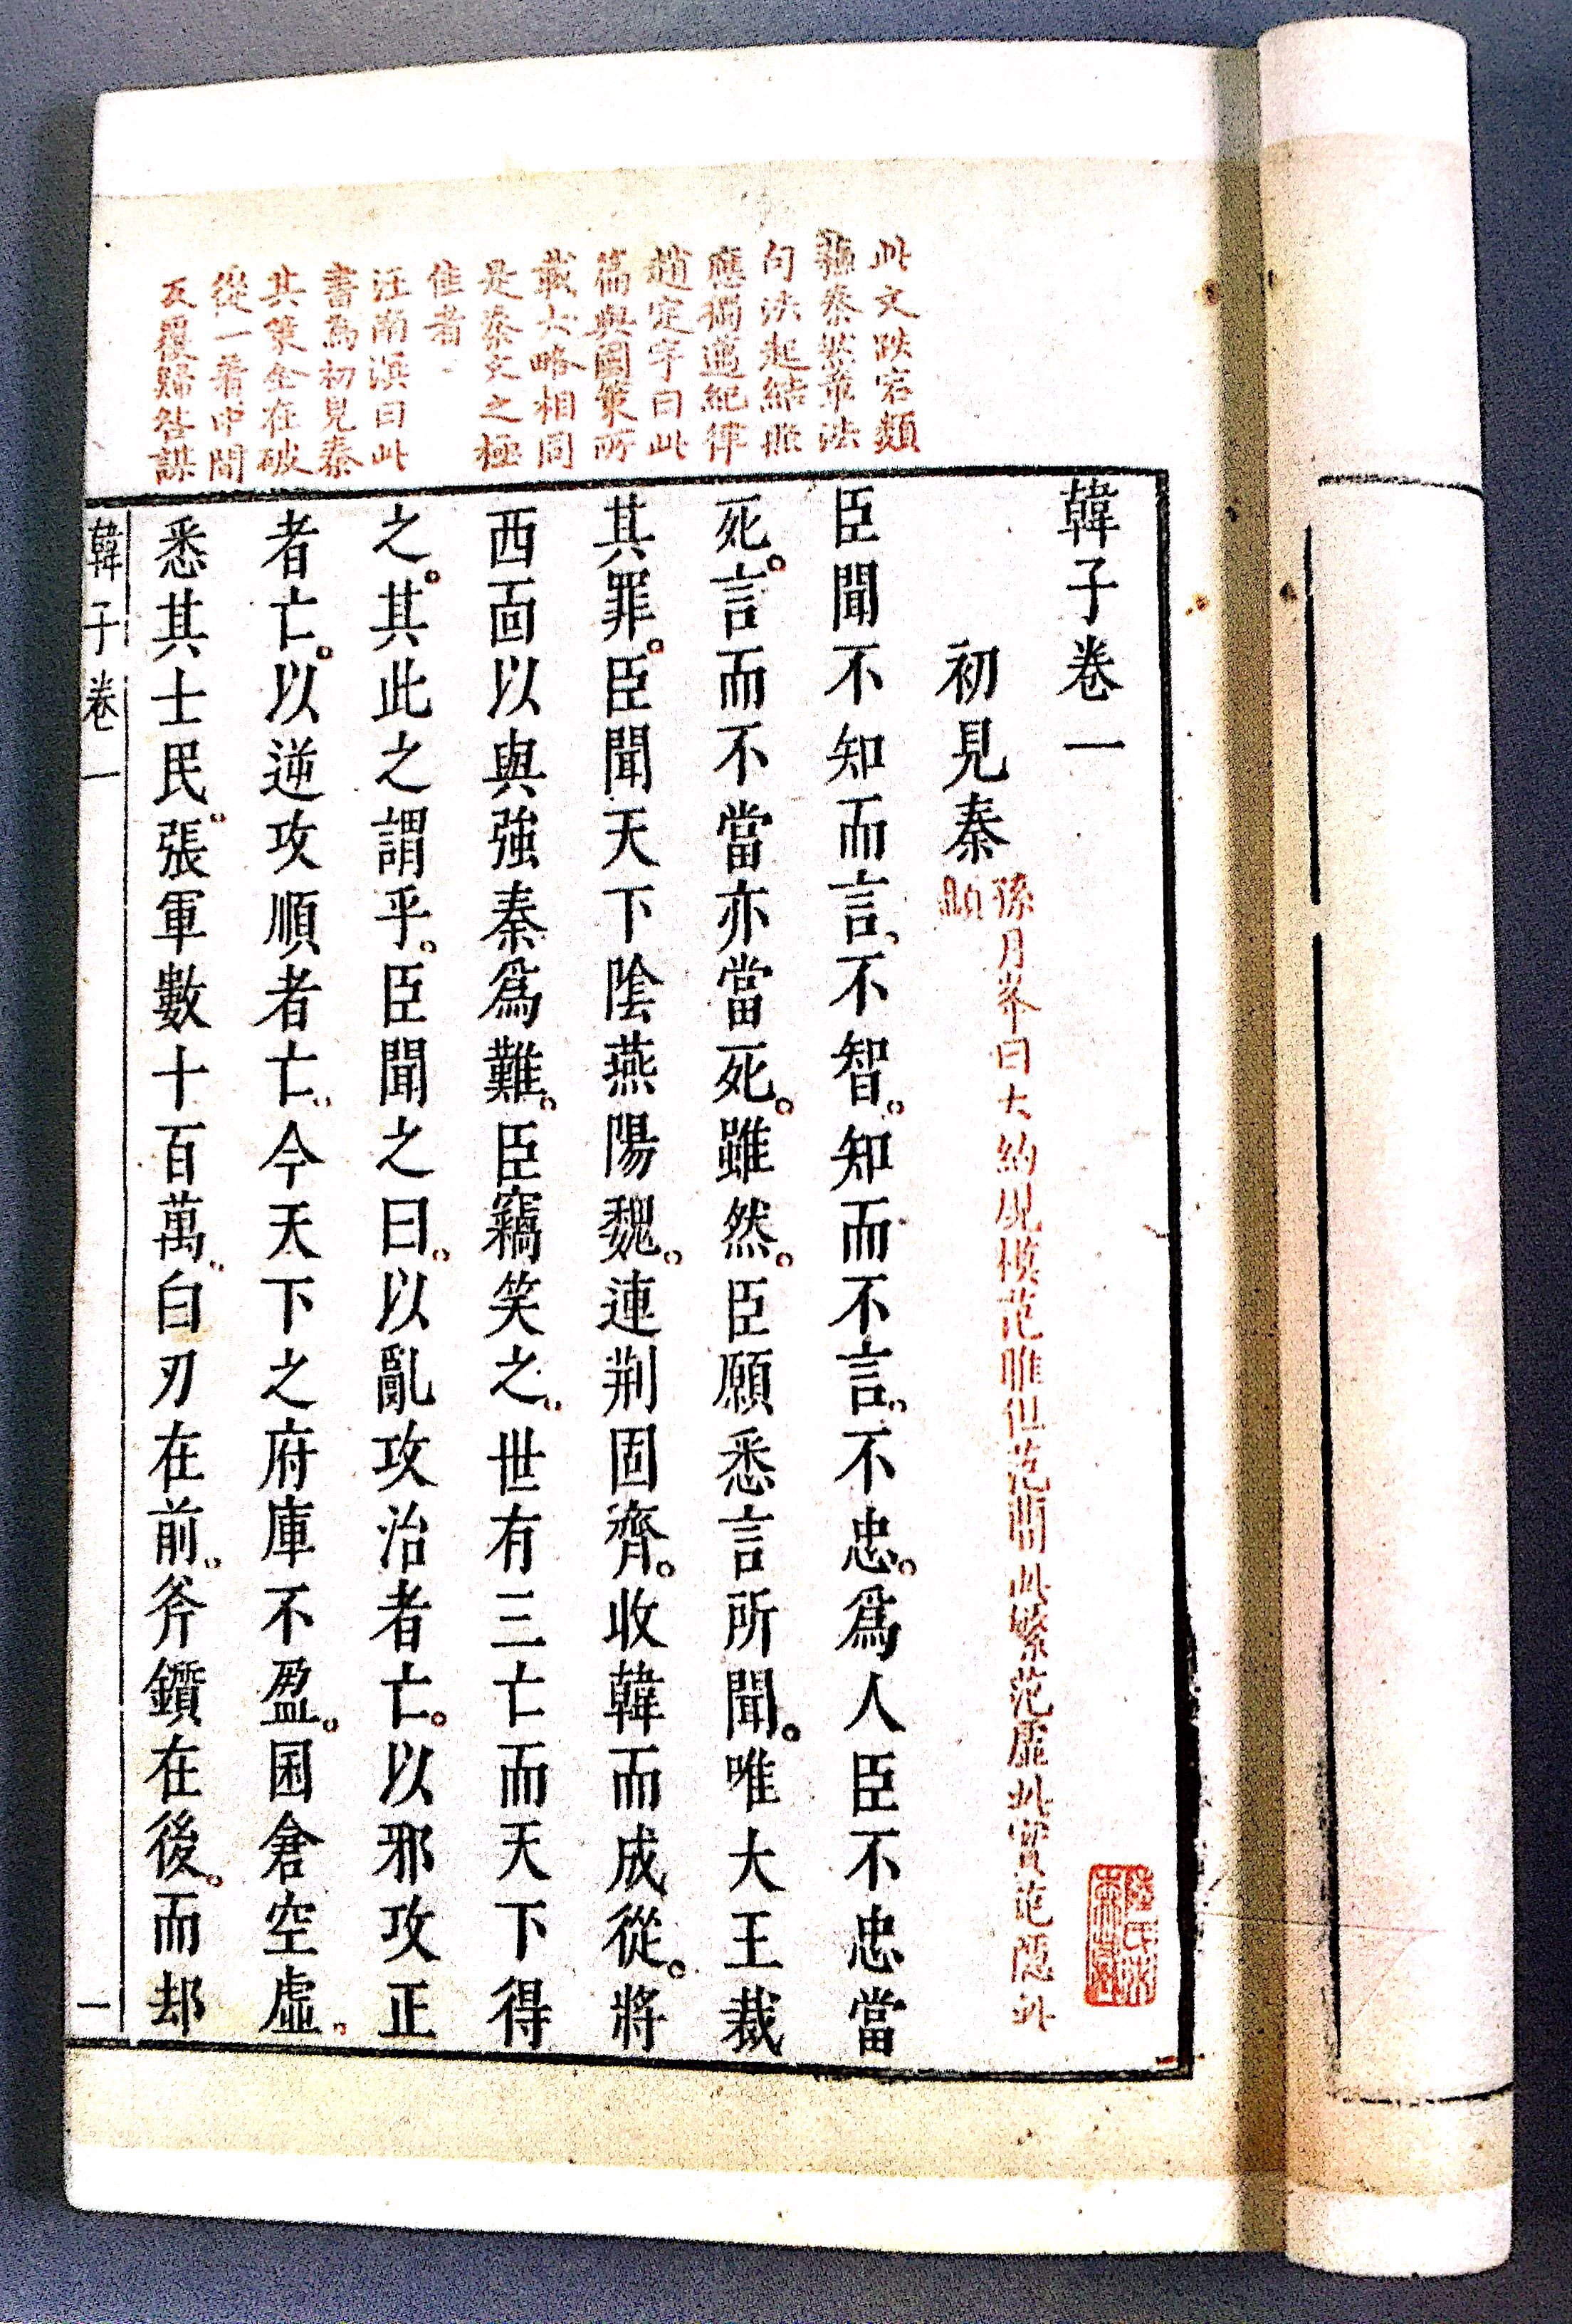 此文跌宕類
蘇秦然章法
句法起結照
應獨邁紀律
趙定宇曰此
篇與國策所
載大略相同
是秦文之極
佳者
汪南溟曰此
書為初見秦
其策全在破
從一着中間
反覆歸咎謀
韓子卷一
初見秦
孫月峯曰大約規模范雎但范簡此繁范虛此實范隱此
顯
臣聞不知而言、不智。知而不言、不忠。爲人臣不忠當
死。言而不當亦當死。雖然。臣願悉言所聞。唯大王裁
其罪。臣聞天下陰燕陽魏。連荆固齊。收韓而成從。將
西面以與強秦爲難。臣竊笑之、世有三亡而天下得
之。其此之謂乎。臣聞之曰。以亂攻治者亡。以邪攻正
者亡。以逆攻順者亡、今天下之府庫不盈。囷倉空虛、
悉其士民、張軍數十百萬、白刃在前、斧鑕在後。而却
韓子卷一
一